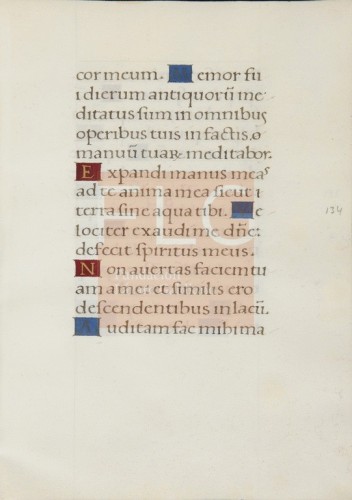 cor meum. Memor fu
i dierum antiquorū me
ditatus sum in omnibus
operibus tuis in factis.o
manuū tuaꝝ meditabor.
Expandi manus meas
ad te anima mea sicut t
terra sine aqua tibi. Ve
lociter exaudi me dn̄e:
defecit spiritus meus.
Non avertas faciem tu
am a me: et similis ero
descendentibus in lacū.
Auditam fac mihi ma
134